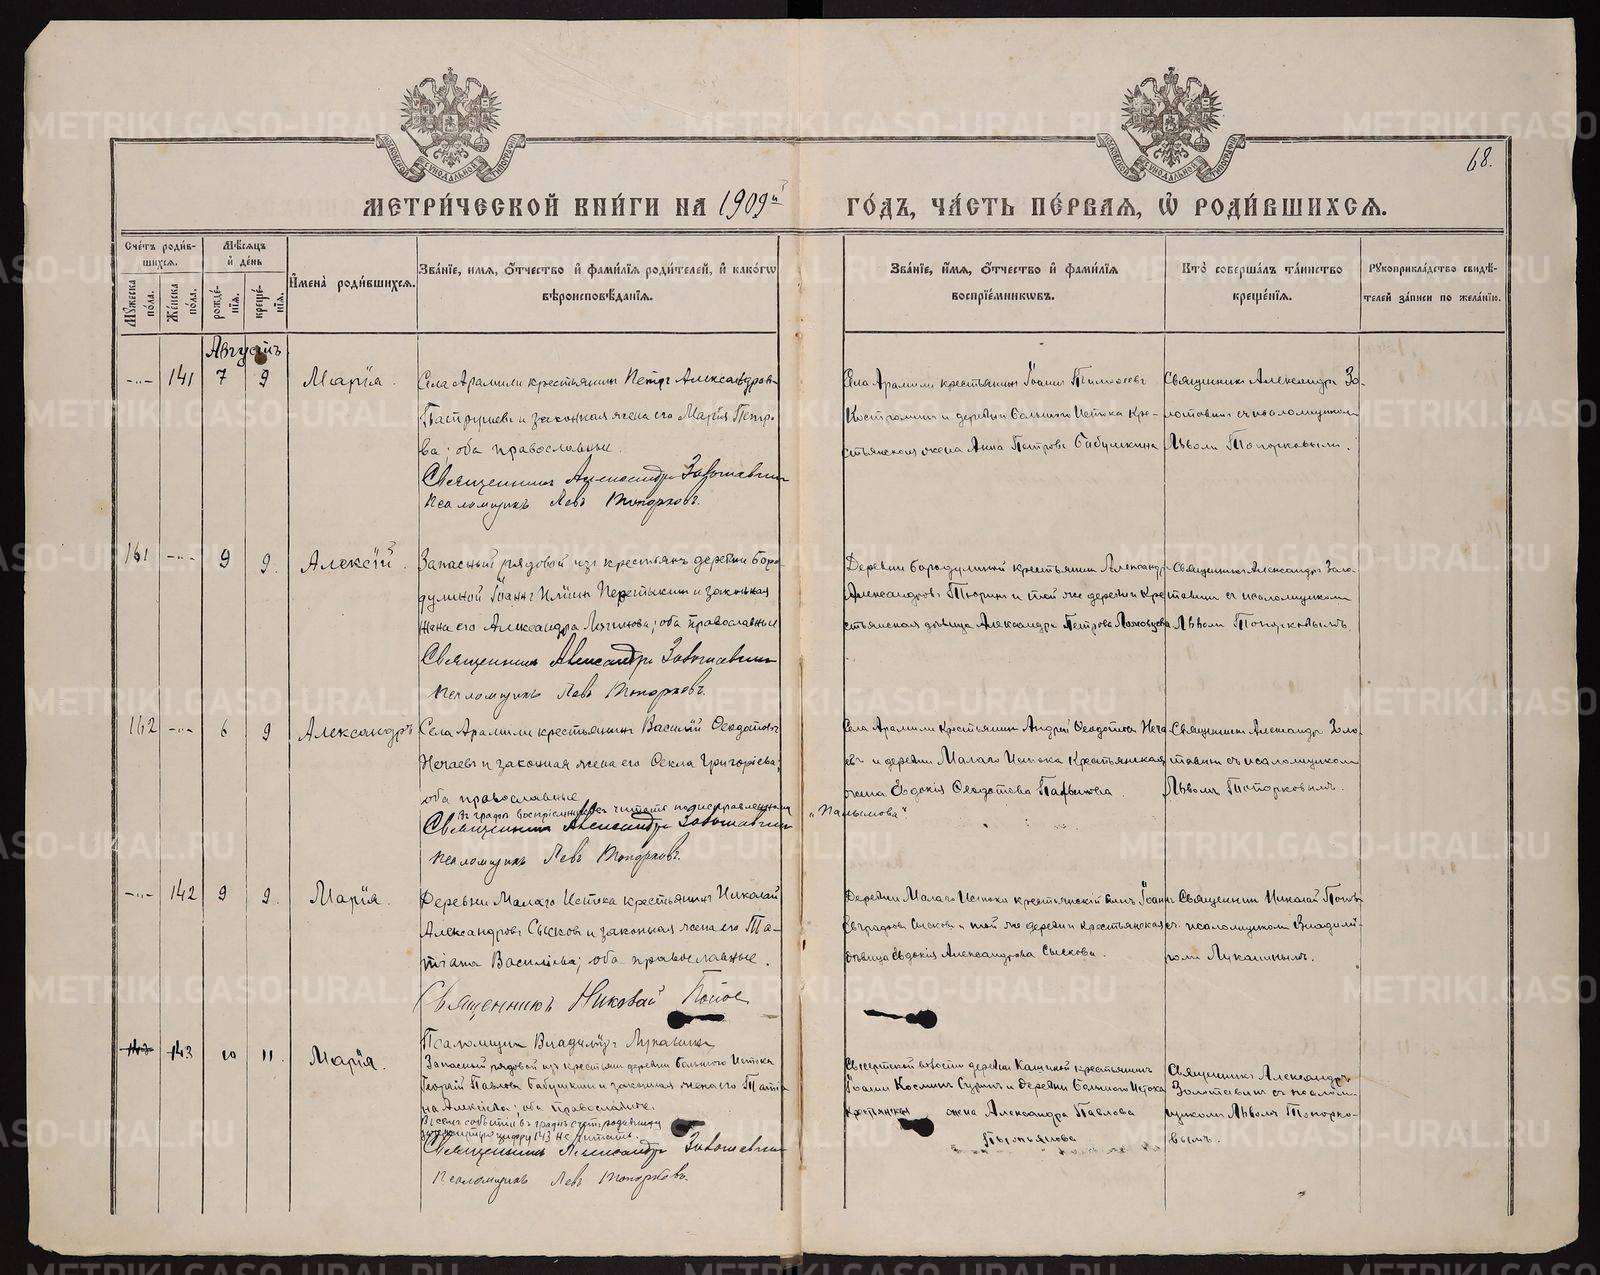 68.
МЕТРИ́ЧЕСКОЙ КНИ́ГИ НА 1909й ГО́ДЪ, ЧА́СТЬ ПЕ́РВАЯ, Ѡ РОДИ́ВШИХСЯ.
Сче́тъ роди́в-
шихся.
Мꙋжеска по́ла.
Же́нска по́ла.
Мѣ́сяцъ
и҆ де́нь
рожде́нїѧ.
креще́нїѧ.
И҆мена̀ роди́вшихсѧ.
Зва́нїе, и҆мѧ, ѻ҆́тчество и҆ фами́лїѧ роди́телей, и҆ како́гѡ
вѣроисповѣ́данїѧ.
Зва́нїе, и҆́мѧ, ѻ҆́тчество и҆ фами́лїѧ
воспрїе́мникѡвъ.
Кто̀ соверша́лъ та́инство
креще́нїѧ.
Рꙋкоприкла́дство свидѣ́-
телей за́писи по жела́нїю.
Августъ
-..- 141 7 9 Марія.
Села Арамили крестьянинъ Петръ Александровъ
Пастуховъ и законная жена его Марія Петро-
ва; оба православные.
Священникъ Александръ Золотавинъ
Псаломщикъ Левъ Топорковъ.
Села Арамили крестьянинъ Іоаннъ
Костромин и деревни Большого Истока кре-
стьянская жена Анна Петрова Бабушкина
Священникъ Александръ Зо-
лотавинъ съ псаломщикомъ
Львомъ Топорковымъ.
161 -..- 9 9. Алексій.
Запасный рядовой изъ крестьянъ деревни Боро-
дулиной Іоаннъ и законная
жена его Александра Логинова; оба православные
Священникъ Александръ Золотавинъ
Псаломщикъ Левъ Топорковъ.
Деревни Бородулиной крестьянинъ Александръ
Александровъ Тюринъ и той же деревни Кре-
стьянская дѣвица Александра Петрова
Священникъ Александръ Золо-
тавинъ съ псаломщикомъ
Львомъ Топорковымъ.
162 -..- 6 9 Александръ
Села Арамили крестьянинъ Василій Ѳеодотовъ
Нечаевъ и законная жена его Ѳекла Григоріева;
оба православные
Въ графѣ воспріемниковъ читать подисправленному
„Папымова“
Священникъ Александръ Золотавинъ
Псаломщикъ Левъ Топорковъ.
Села Арамили Крестьянинъ Андрей Ѳеодотовъ Неча-
евъ и деревни Малаго Истока Крестьянская
жена Евдокія Ѳеодотова
Священникъ Александръ Золо-
тавинъ съ псаломщикомъ
Львомъ Топорковымъ.
-..- 142 9 9. Марія.
Деревни Малаго Истока крестьянинъ Николай
Александровъ Сысковъ и законная жена его Та-
тіана Василіева; оба православные.
Священникъ Николай Поповъ
Псаломщикъ Владиміръ Лукашинъ
Деревни Малаго Истока крестьянскій сынъ Іоаннъ
Евграфовъ Сысковъ и той же деревни крестьянская
дѣвица Евдокія Александрова Сыскова.
Священникъ Николай Поповъ
съ псаломщикомъ Владимі-
ромъ
143 10 11. Марія.
Запасный рядовой изъ крестьянъ деревни Большого Истока
Георгій Павловъ Бабушкинъ и законная жена его Татіа-
на Алексіева; оба православные.
цифру 143 не читать.
Священникъ Александръ Золотавинъ
Псаломщикъ Левъ Топорковъ.
Сысертской волости деревни Кашиной крестьянинъ
Іоаннъ Косминъ Суринъ и деревни Большого Истока
Крестьянская жена Александра Павлова
Священникъ Александръ
Золотавинъ съ псалом-
щикомъ Львомъ Топорко-
вымъ.